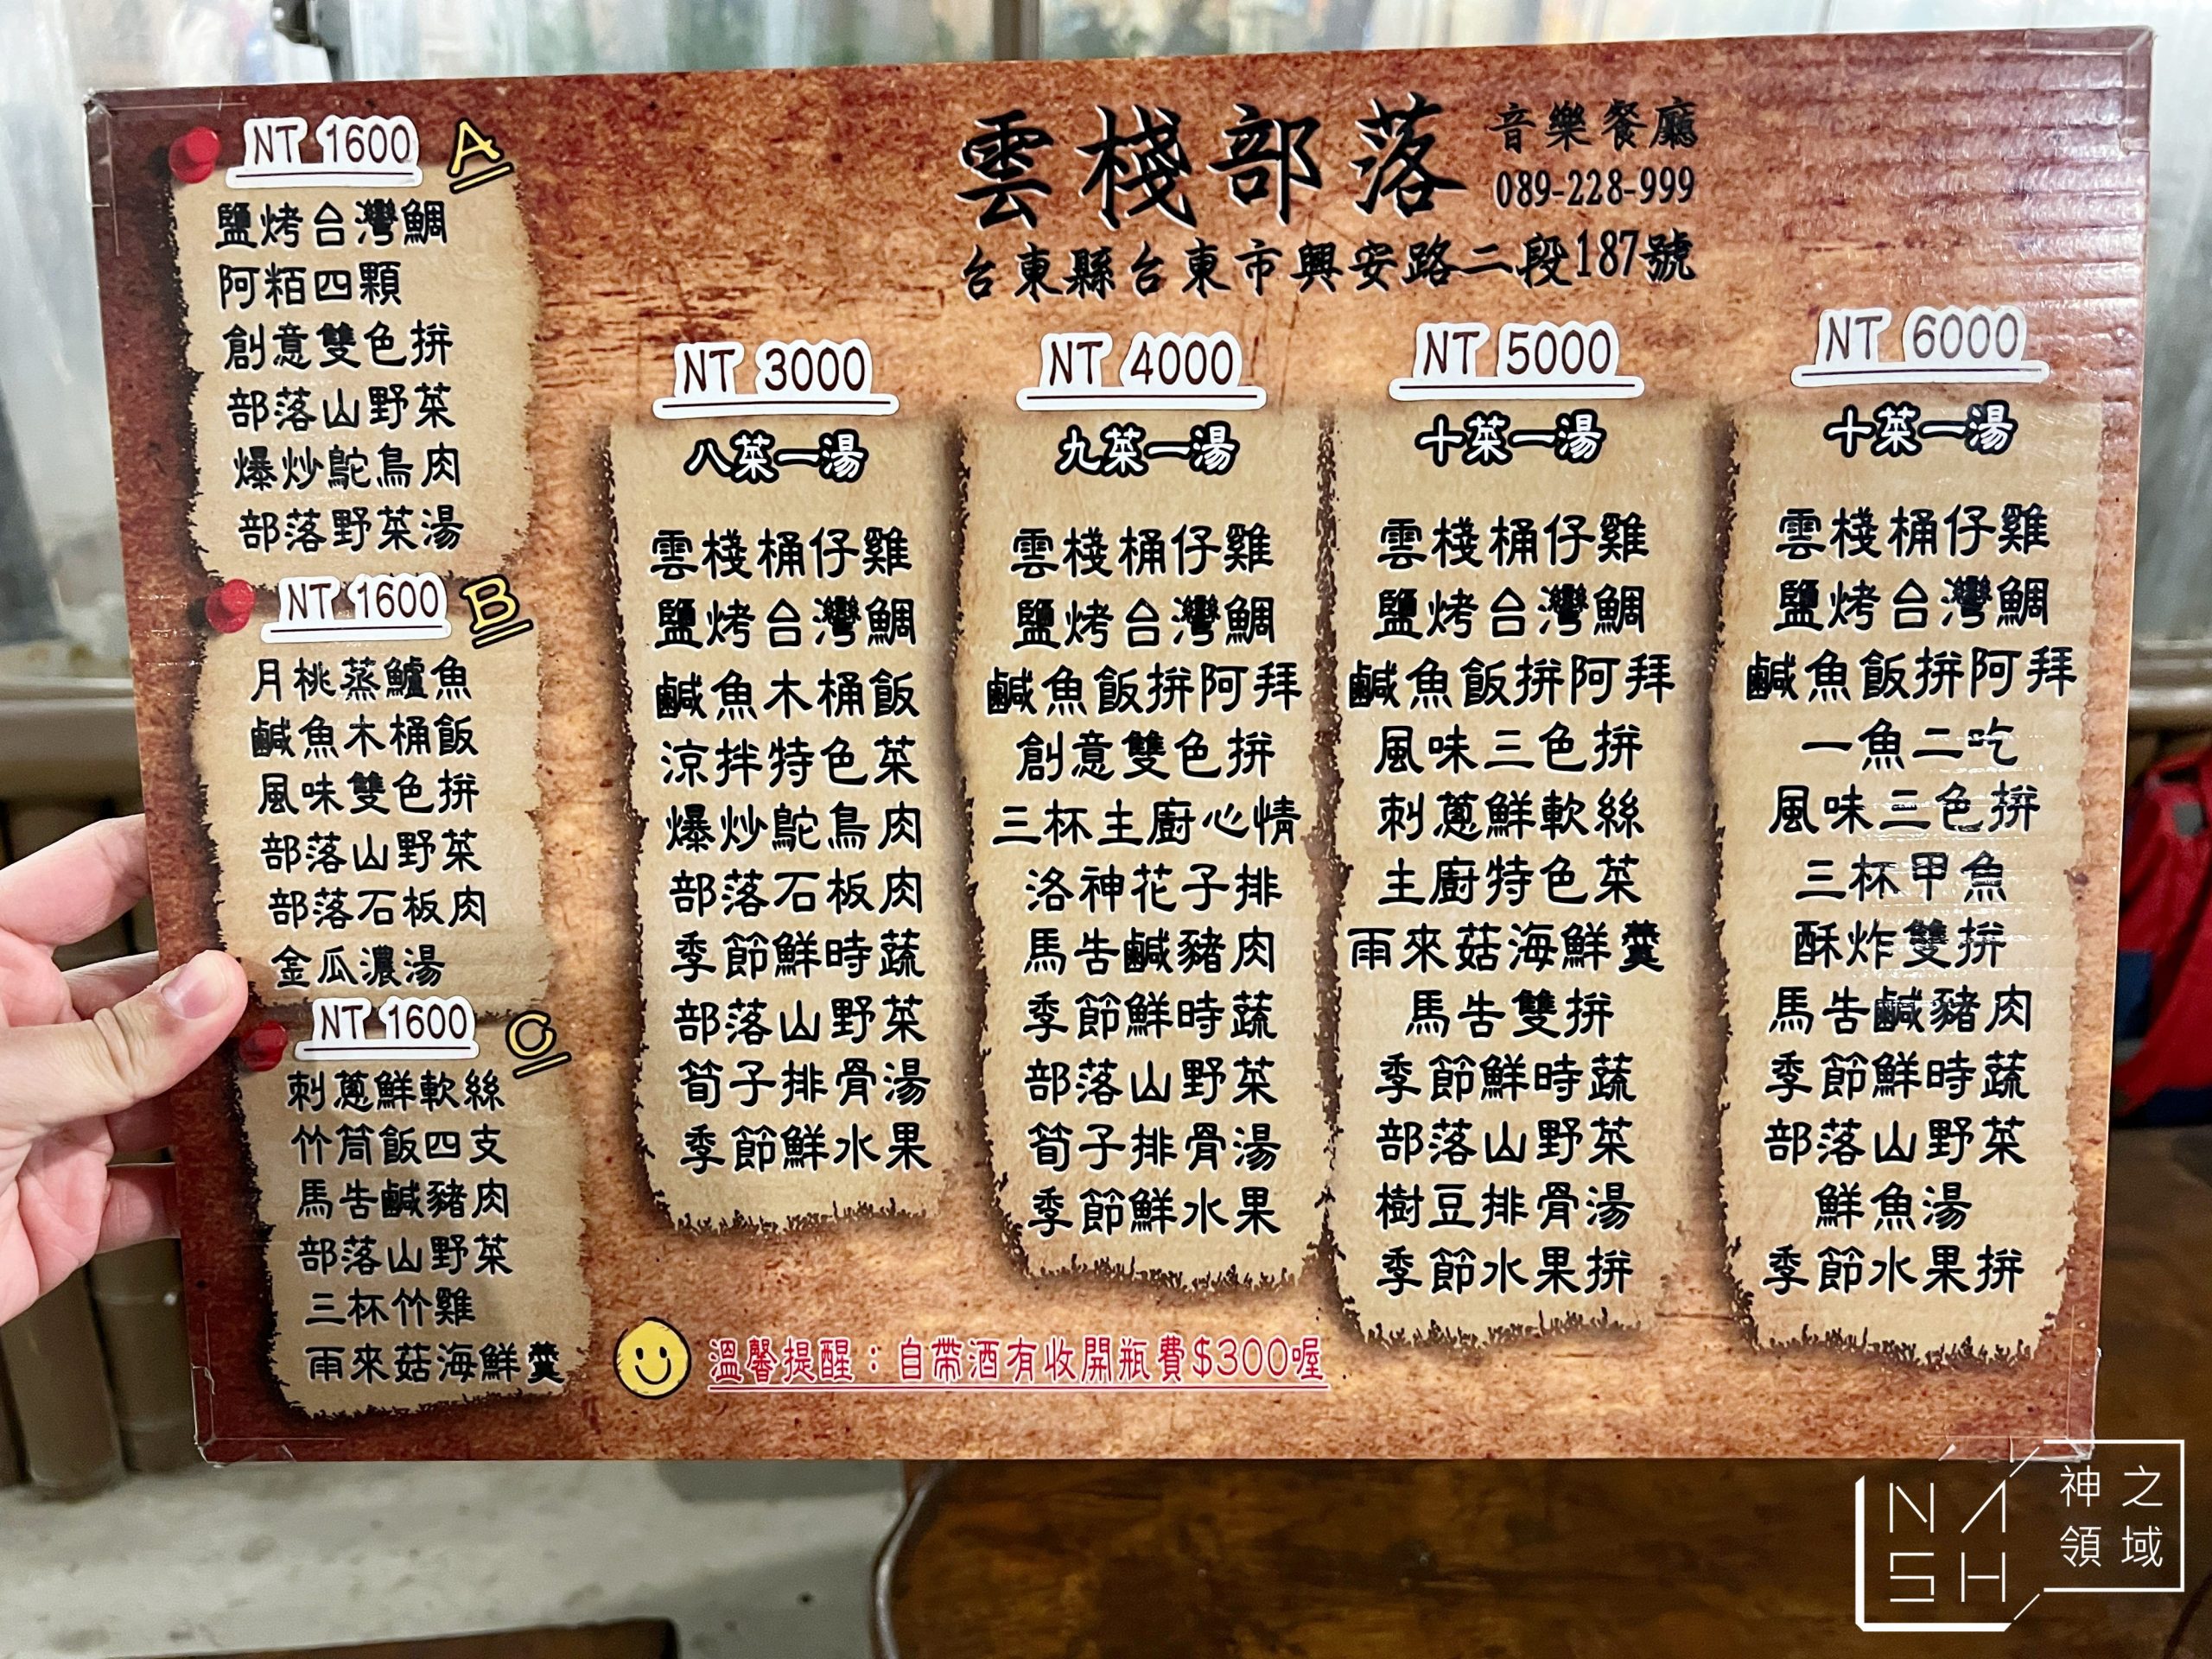 雲棧部落 音樂餐廳
089-228-999
台東縣台東市興安路二段187號
NT 1600 A
鹽烤台灣鯛
阿粨四顆
創意雙色拼
部落山野菜
爆炒鴕鳥肉
部落野菜湯
NT 1600 B
月桃蒸鱸魚
鹹魚木桶飯
風味雙色拼
部落山野菜
部落石板肉
金瓜濃湯
NT 1600 C
刺蔥鮮軟絲
竹筒飯四支
馬告鹹豬肉
部落山野菜
三杯竹雞
雨來菇海鮮羹
NT 3000
八菜一湯
雲棧桶仔雞
鹽烤台灣鯛
鹹魚木桶飯
涼拌特色菜
爆炒鴕鳥肉
部落石板肉
季節鮮時蔬
部落山野菜
筍子排骨湯
季節鮮水果
NT 4000
九菜一湯
雲棧桶仔雞
鹽烤台灣鯛
鹹魚飯拼阿拜
創意雙色拼
三杯主廚心情
洛神花子排
馬告鹹豬肉
季節鮮時蔬
部落山野菜
筍子排骨湯
季節鮮水果
NT 5000
十菜一湯
雲棧桶仔雞
鹽烤台灣鯛
鹹魚飯拼阿拜
風味三色拼
刺蔥鮮軟絲
主廚特色菜
雨來菇海鮮羹
馬告雙拼
季節鮮時蔬
部落山野菜
樹豆排骨湯
季節水果拼
NT 6000
十菜一湯
雲棧桶仔雞
鹽烤台灣鯛
鹹魚飯拼阿拜
一魚二吃
風味三色拼
三杯甲魚
酥炸雙拼
馬告鹹豬肉
季節鮮時蔬
部落山野菜
鮮魚湯
季節水果拼
溫馨提醒：自帶酒有收開瓶費$300喔
NASH
神之領域